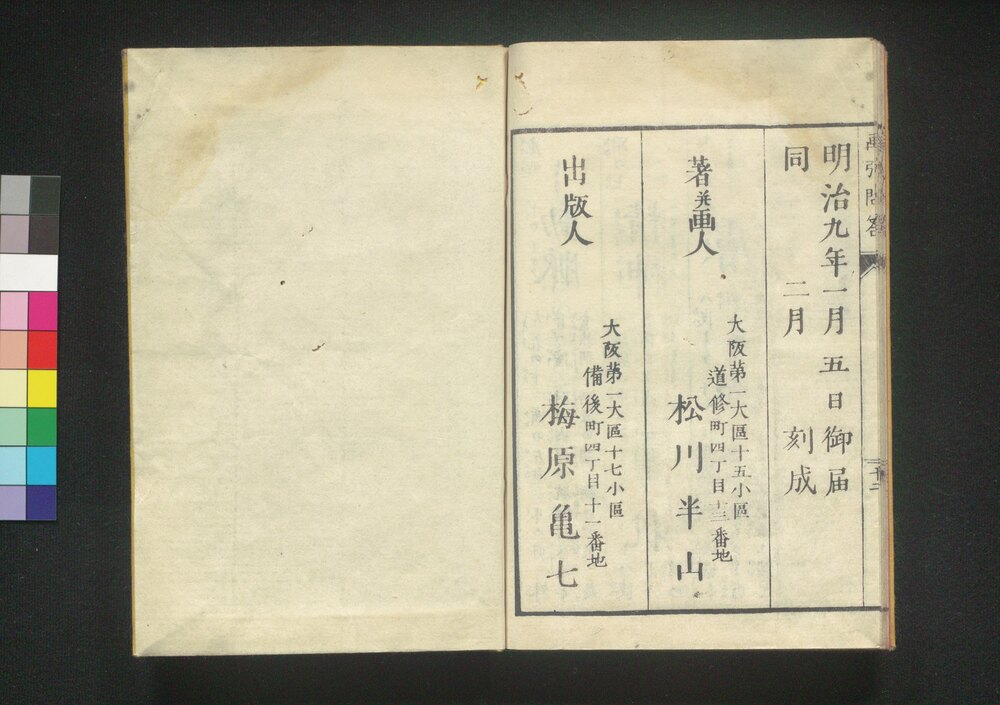 明治九年一月五日御届
同 二月 刻成
著并画人
大阪第一大區十五小區
道修町四丁目十三番地
松川半山
出版人
大阪第一大區十七小區
備後町四丁目十一番地
梅原亀七
問答